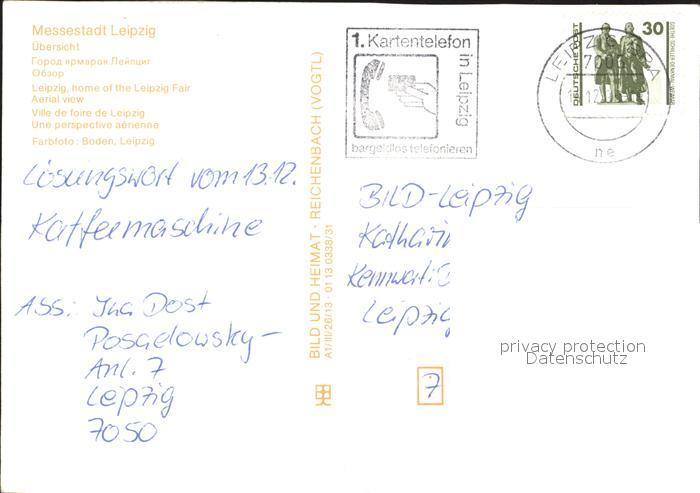 Messestadt Leipzig
Übersicht
Город ярмарок Лейпциг
Обзор
Leipzig, home of the Leipzig Fair
Aerial view
Ville de foire de Leipzig
Une perspective aérienne
Farbfoto: Boden, Leipzig
Lösungswort vom 13.12.
Kaffeemaschine
Abs: Ina Dost
Posadowsky-
Anl. 7
Leipzig
7050
BILD UND HEIMAT · REICHENBACH (VOGTL)
A1/III/26/13 · 01 13 0338/31
1. Kartentelefon
in Leipzig
bargeldlos telefonieren
LEIPZIG
ne
DEUTSCHE POST
30
BILD-Leipzig
Kennwort:
Leipzig
7
privacy protection
Datenschutz